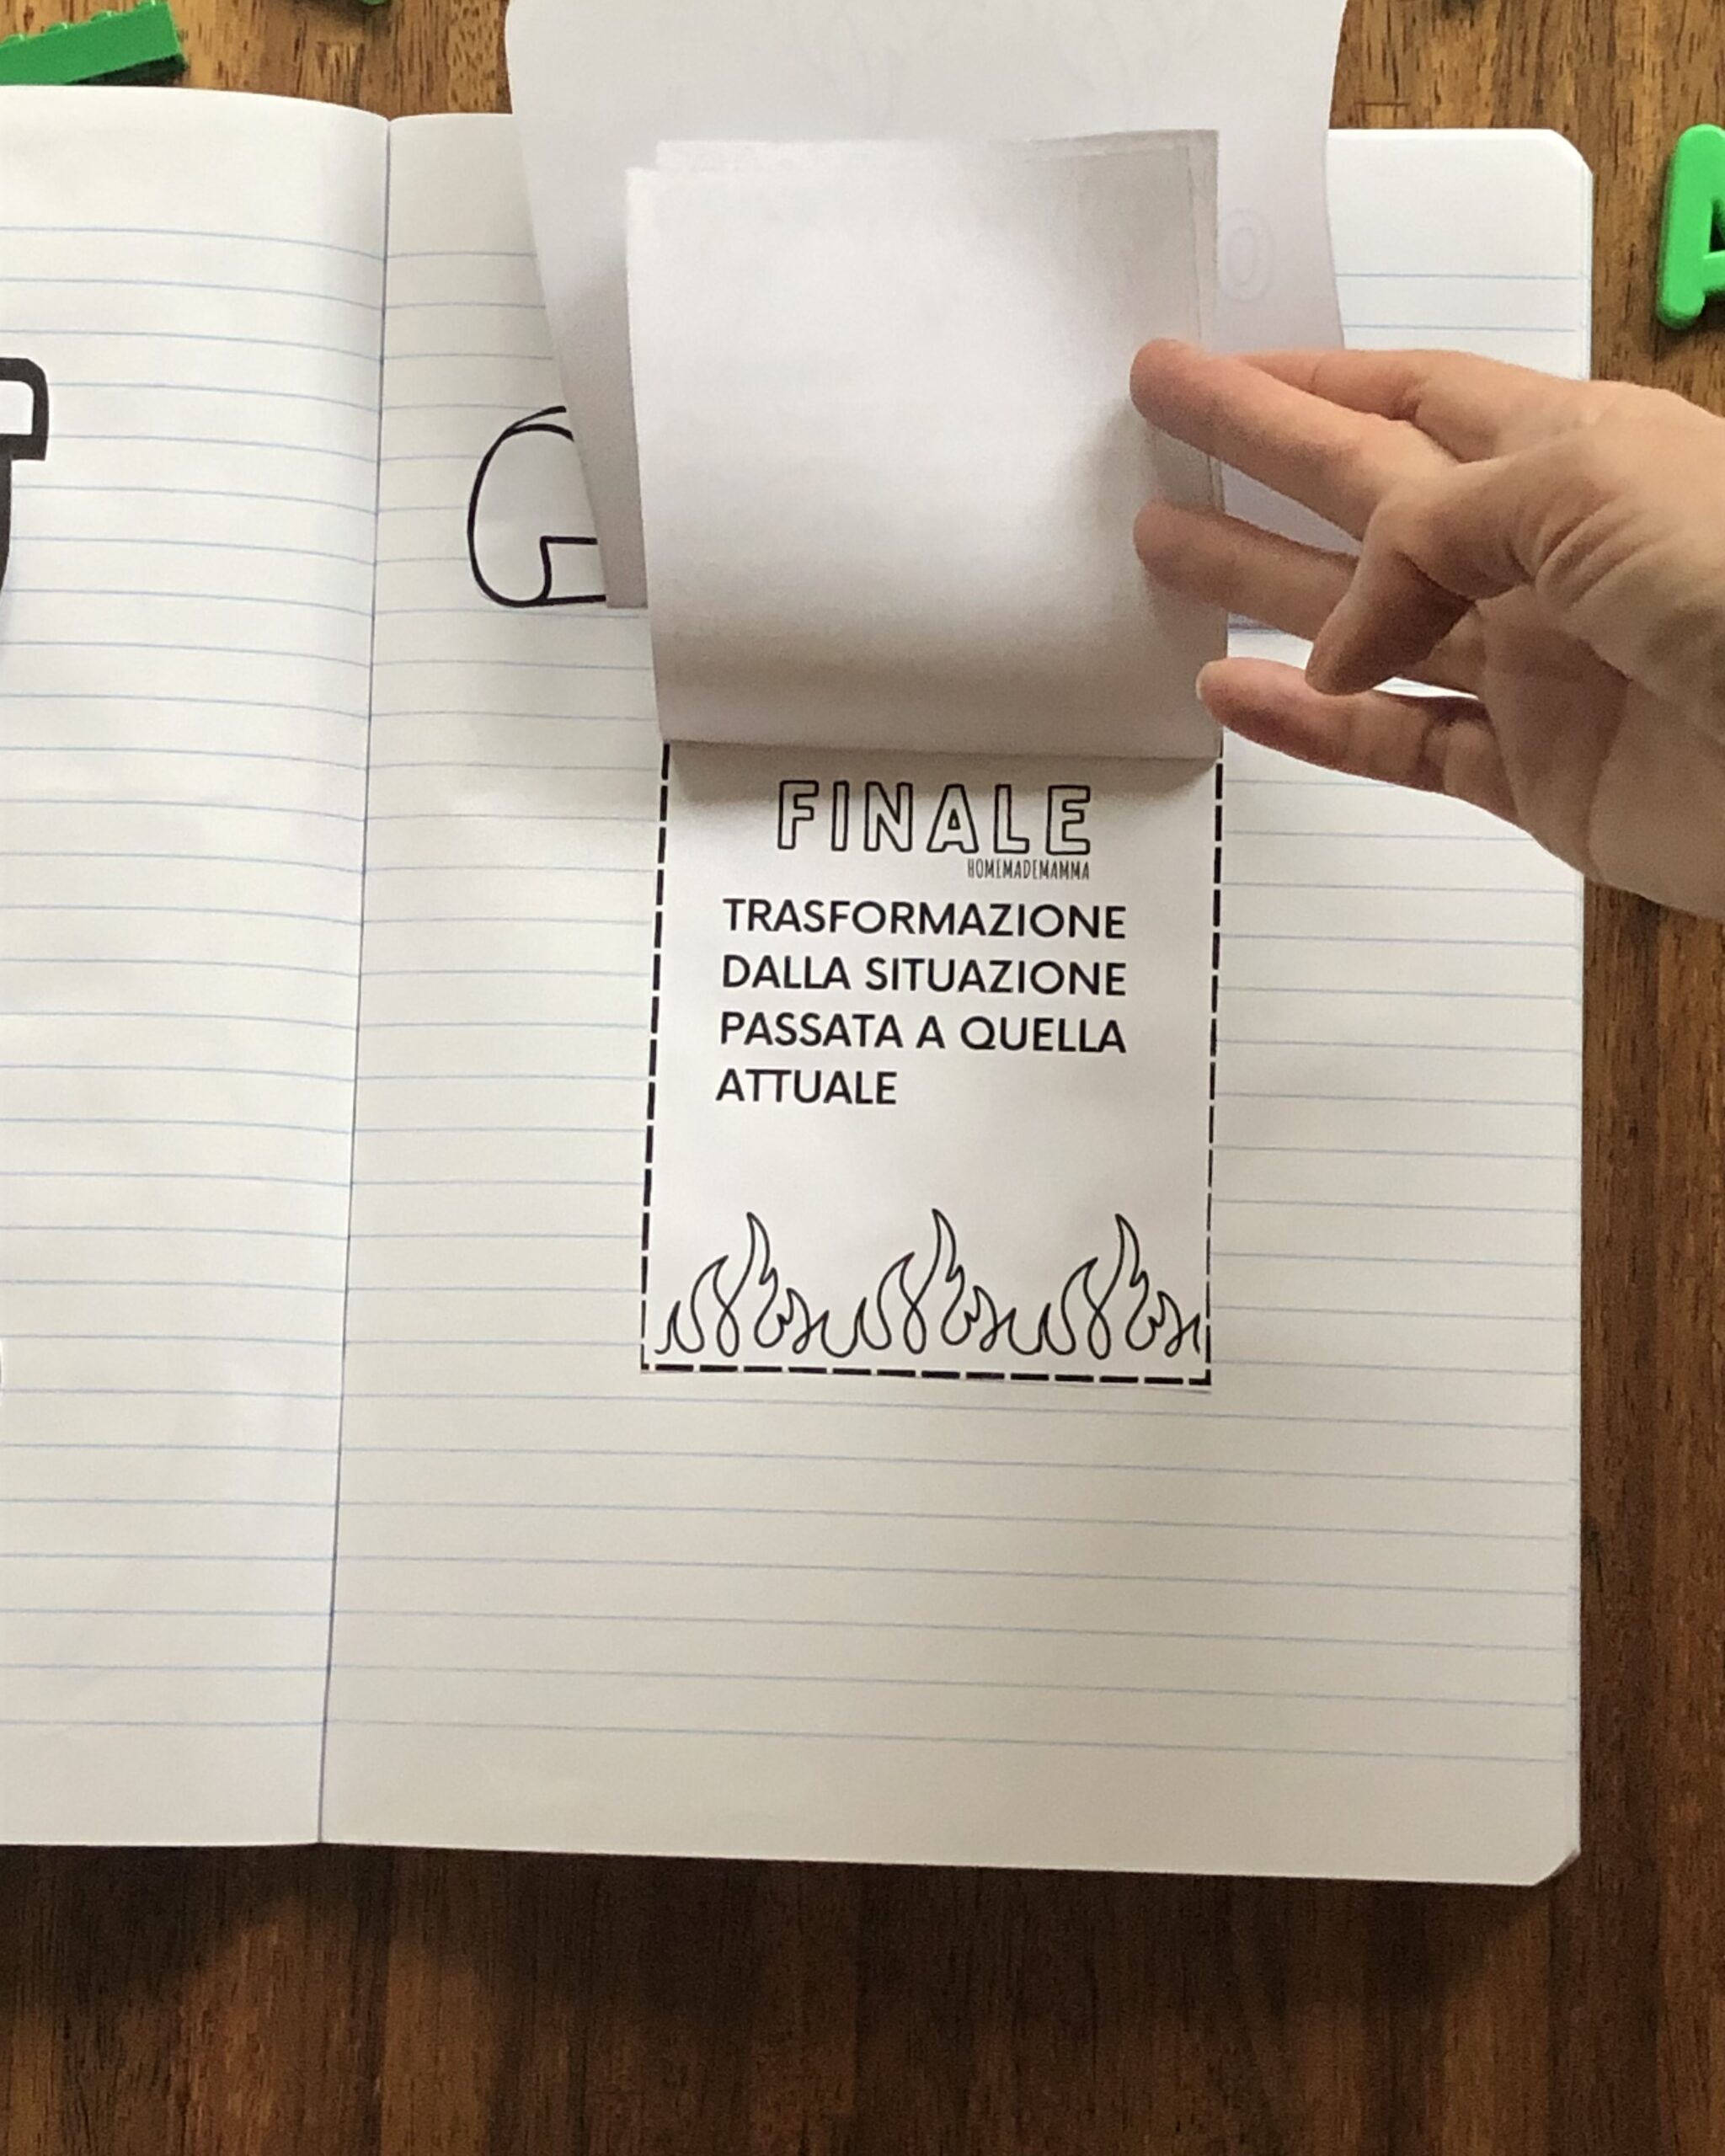 FINALE
HOMEMADEMAMMA
TRASFORMAZIONE
DALLA SITUAZIONE
PASSATA A QUELLA
ATTUALE